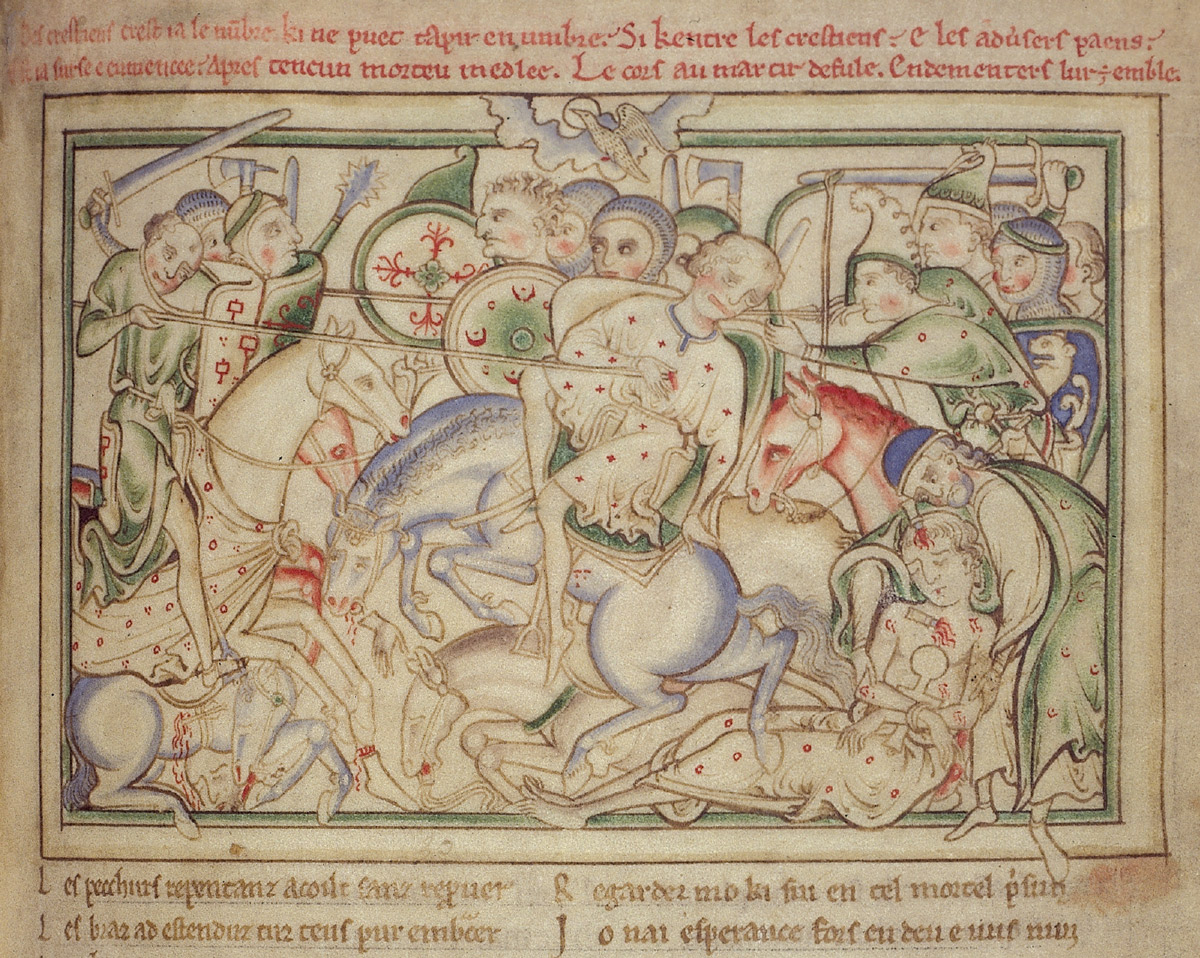 crestiens crest ia le nũbre. ki ne puet tapir en umbre. Si kentre les crestiens. E les adũsers paens.
ia surse e cumencee. Apres tencun morteu medlee. Le cors au martir defule. Endementers lur
Les pecchurs repentanz acoilt sanz
Les braz ad estenduz tuz tens pur
Regarder mo ki su en cel mortel
Jo nai esperance fors en deu e vus nun